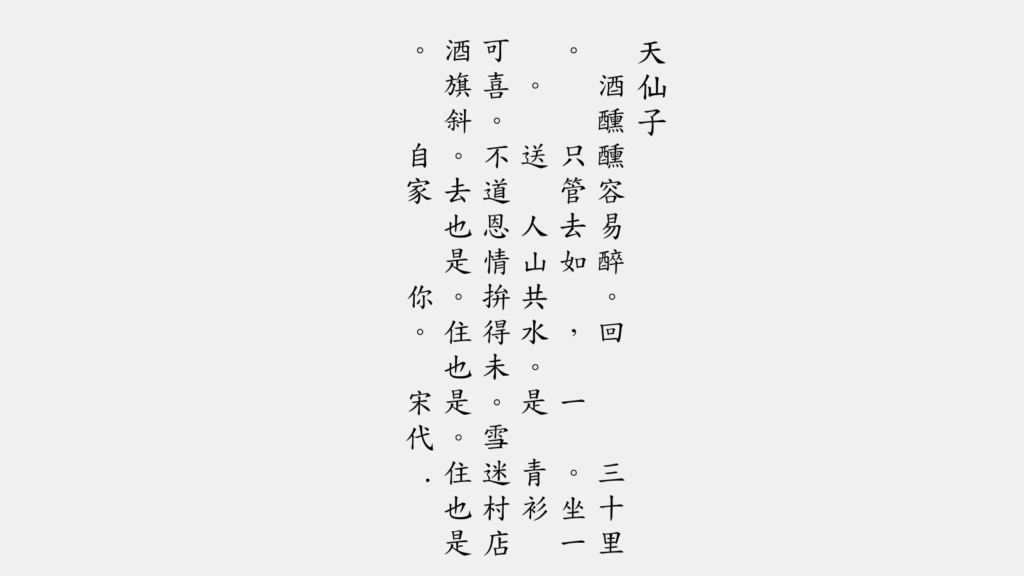 天仙子
酒醺醺容易醉。回　　　三十里
。　　只管去如　，　一　。坐一
。　送　人山共水。是　青衫
可喜。不道恩情拚得未。雪迷村店
酒旗斜。去也是。住也是。住也是
。　　自家　　你。　宋代．